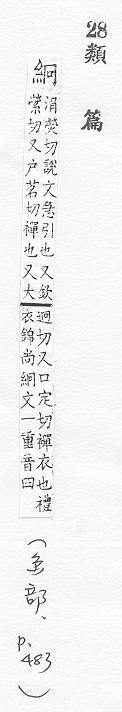 28類篇
絅
涓熒切說文急引也又欽
熒切又户茗切襌也又犬
迥切又口定切襌衣也禮
衣錦尚絅文一重音四
(糸部、p.483)